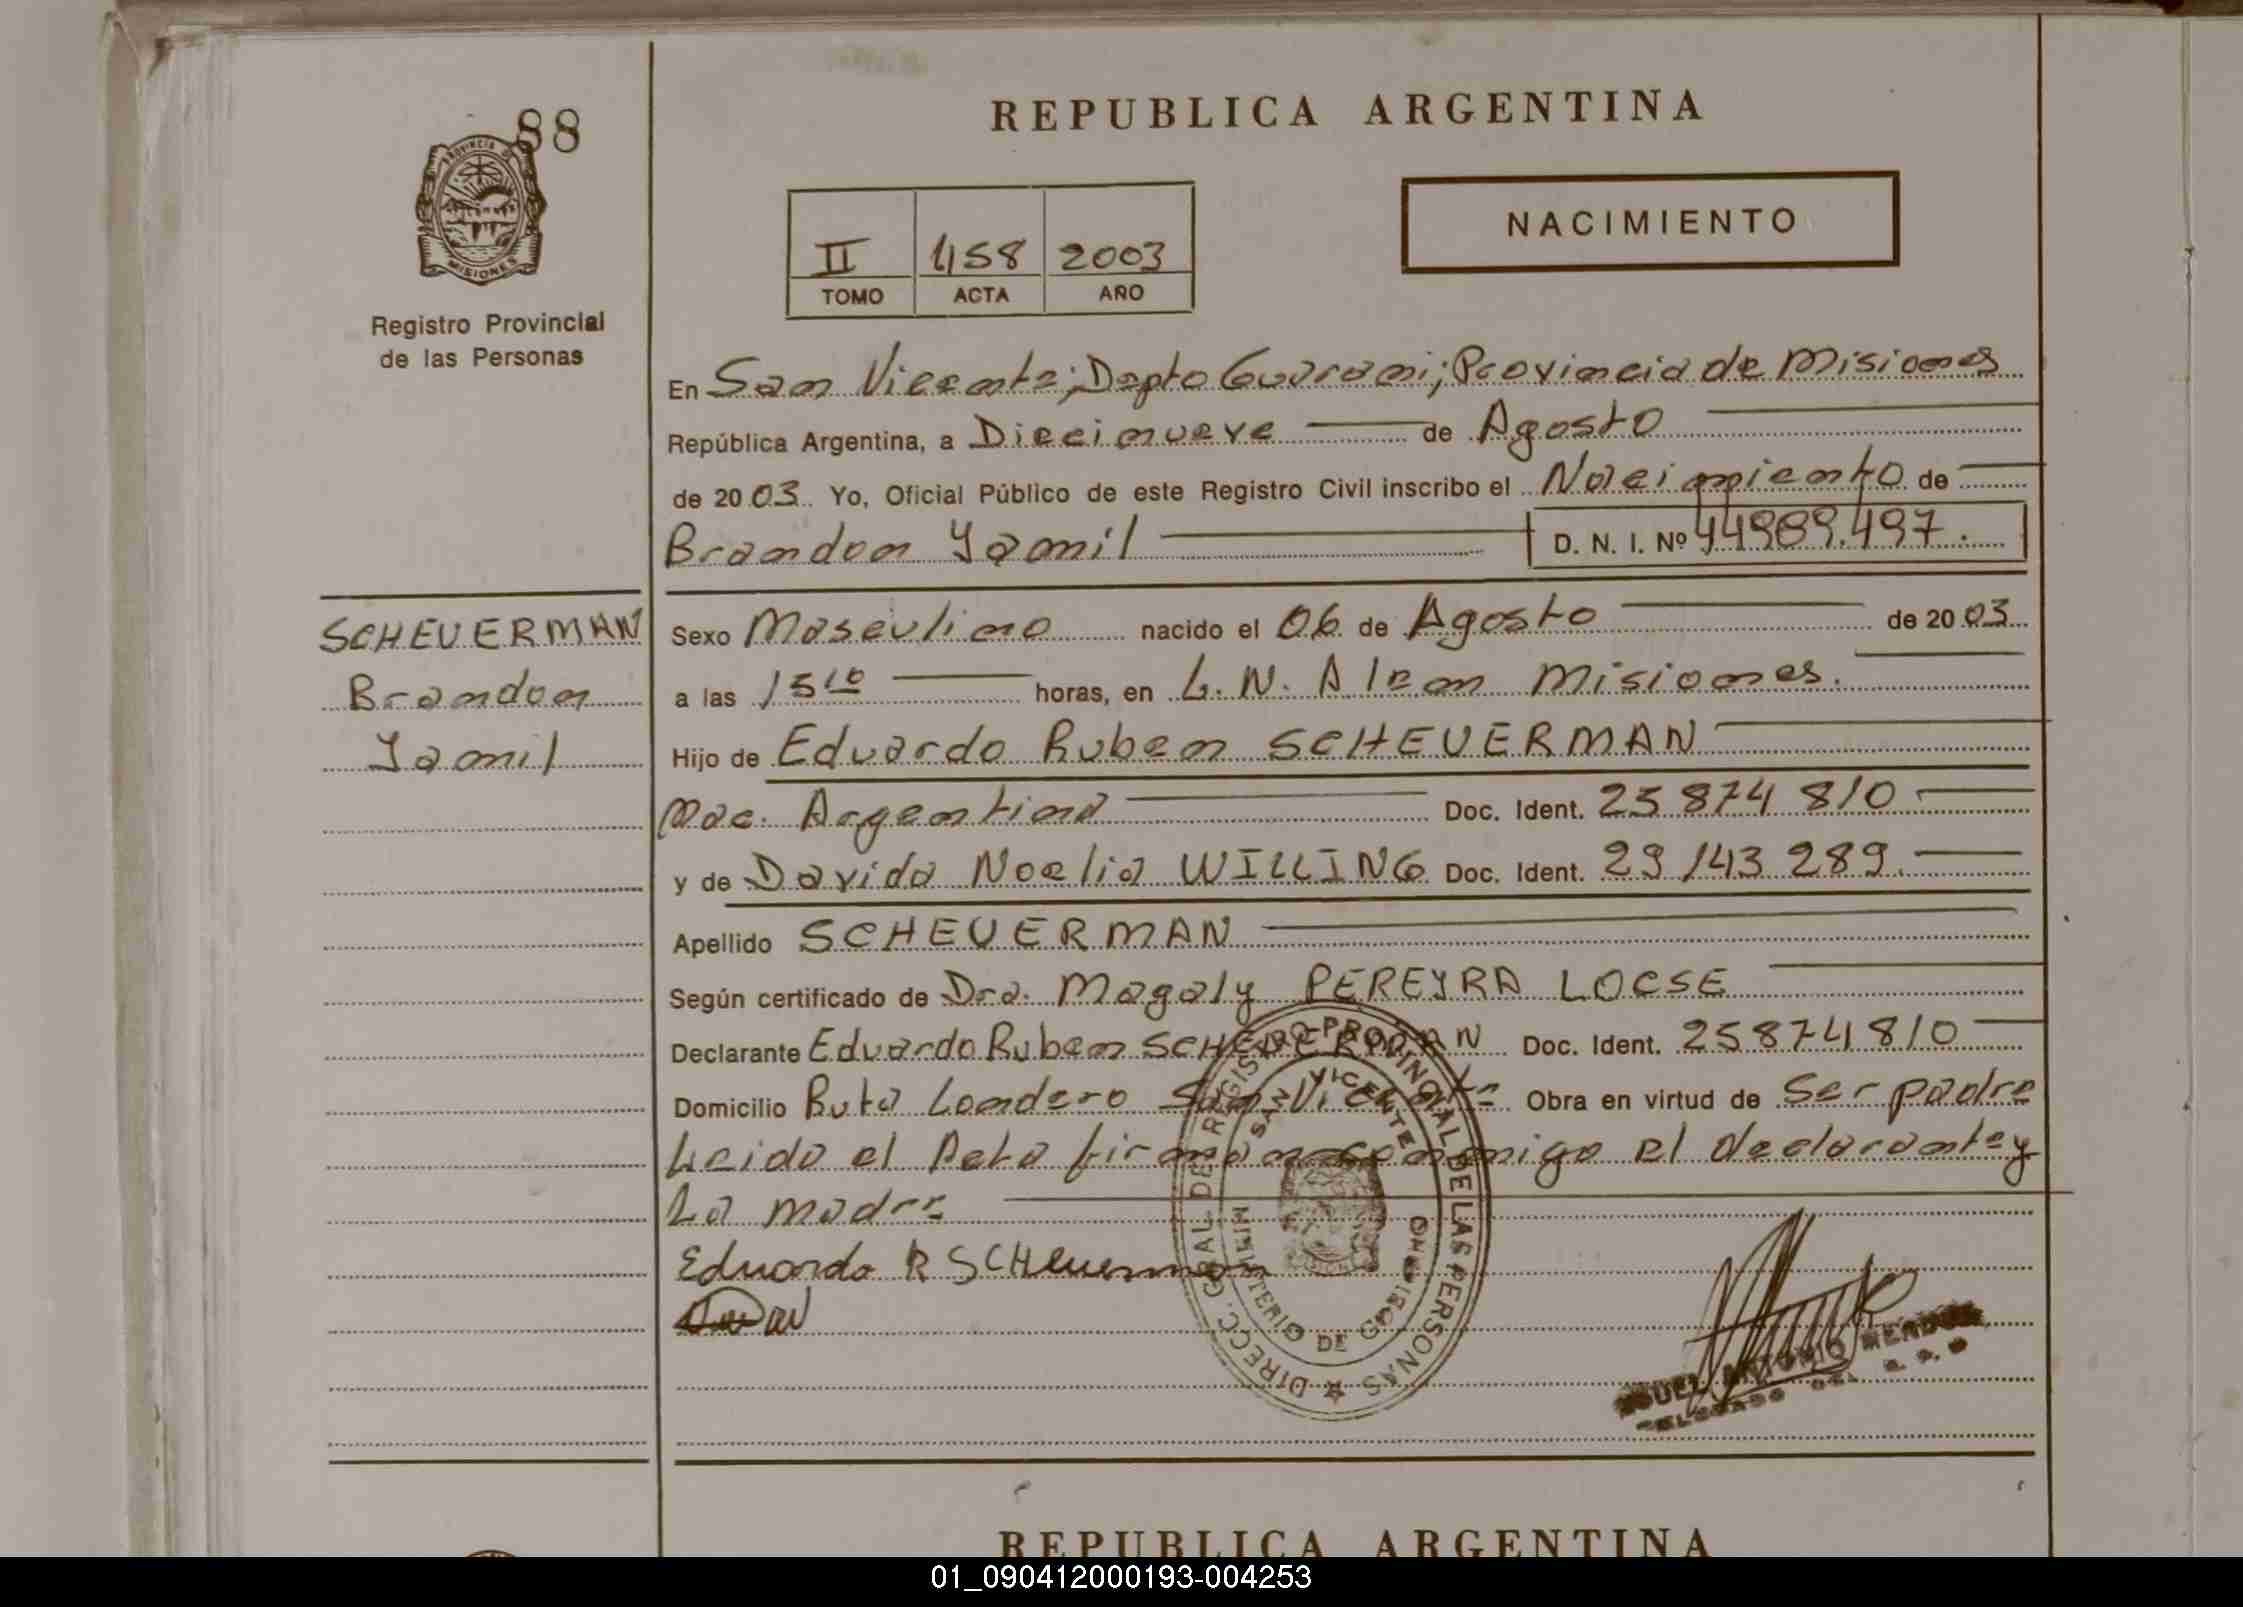 88
PROVINCIA DE
MISIONES
Registro Provincial
de las Personas
REPUBLICA ARGENTINA
II 458 2003
TOMO ACTA AÑO
NACIMIENTO
En San Vicente; Depto Guarani; Provincia de Misiones
República Argentina, a Diecinueve de Agosto
de 2003 Yo, Oficial Público de este Registro Civil inscribo el Nacimiento de
Brandon Yamil D. N. I. Nº 44989.497.
SCHEUERMAN
Brandon
Yamil
Sexo Masculino nacido el 06 de Agosto de 2003
a las 15 10 horas, en L. N. Alem Misiones.
Hijo de Eduardo Ruben SCHEUERMAN
Nac. Argentina Doc. Ident. 25 874 810
y de Davida Noelia WILLING Doc. Ident. 29 143 289.
Apellido SCHEUERMAN
Según certificado de Dra. Magaly PEREYRA LOCSE
Declarante Eduardo Ruben SCHEUERMAN Doc. Ident. 25874810
Domicilio Ruta Londero San Vicente Obra en virtud de Ser padre
Leido el Acta firman conmigo el declarante y
La madre
Eduardo R SCHeuerman
DIRECC. GRAL DEL REGISTRO PROVINCIAL DE LAS PERSONAS
SAN VICENTE
MINISTERIO DE GOBIERNO
ANTONIO
REPUBLICA ARGENTINA
01_090412000193-004253